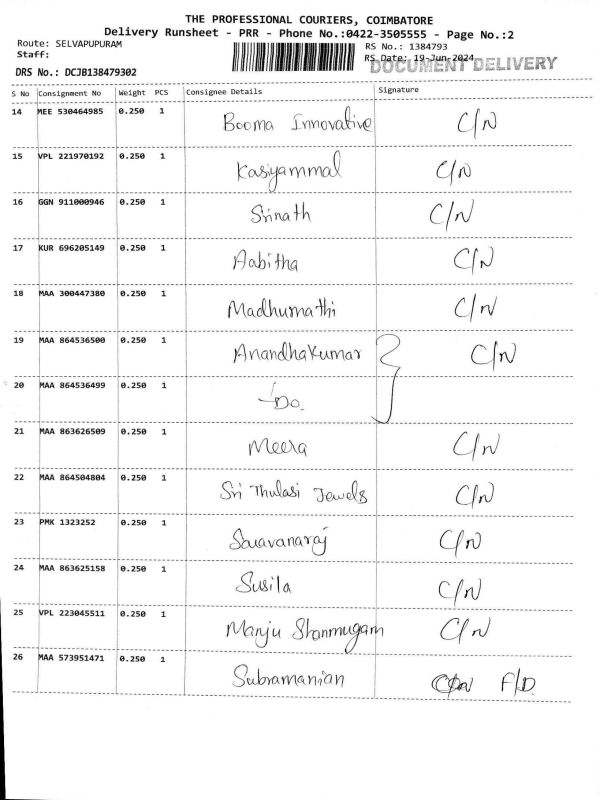 THE PROFESSIONAL COURIERS, COIMBATORE
Delivery Runsheet - PRR - Phone No.:0422-3505555 - Page No.:2
Route: SELVAPUPURAM
RS No.: 1384793
Staff:
RS Date: 19-Jun-2024
DOCUMENT DELIVERY
DRS No.: DCJB138479302
S No Consignment No Weight PCS Consignee Details Signature
14 MEE 530464985 0.250 1 Booma Innovative C/N
15 VPL 221970192 0.250 1 Kasiyammal C/N
16 GGN 911000946 0.250 1 Srinath C/N
17 KUR 696205149 0.250 1 Aabitha C/N
18 MAA 300447380 0.250 1 Madhumathi C/N
19 MAA 864536500 0.250 1 Anandhakumar C/N
20 MAA 864536499 0.250 1 Do.
21 MAA 863626509 0.250 1 Meera C/N
22 MAA 864504804 0.250 1 Sri Thulasi Jewels C/N
23 PMK 1323252 0.250 1 Saravanaraj C/N
24 MAA 863625158 0.250 1 Susila C/N
25 VPL 223045511 0.250 1 Manju Shanmugam C/N
26 MAA 573951471 0.250 1 Subramanian F/D.